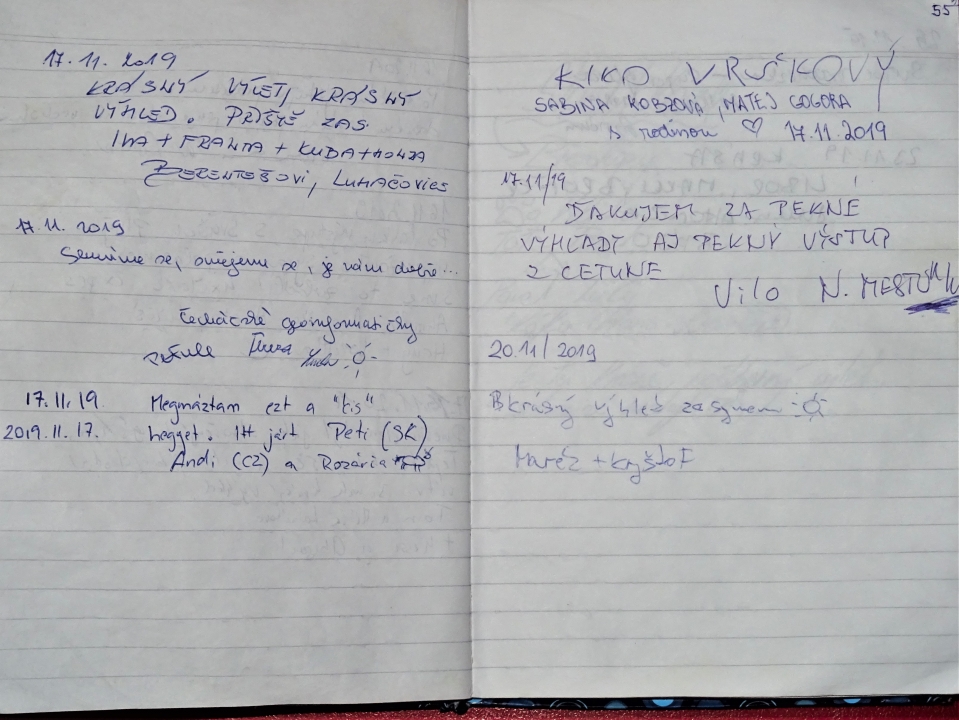 17. 11. 2019
KRÁSNÝ VÝLET, KRÁSNÝ
VÝHLED. PŘÍŠTĚ ZAS.
INA + FRANTA + KUBA + HONZA
LUHAČOVICE
17. 11. 2019
se, je nám dobře...
17. 11. 19 Megmáztam ezt a "kis"
2019. 11. 17. hegyet. Itt járt Peti (SK)
Andi (CZ) a Rozária
55
KIKO VRŠKOVÝ
SABINA KOBZOVÁ, MATEJ GOGORA
s rodinou ♡ 17.11.2019
17.11/19
ĎAKUJEM ZA PEKNÉ
VÝHĽADY AJ PEKNÝ VÝSTUP
Z CETUNE
Vilo N. MESTO
20.11/2019
krásný výhled za synem
+ Kryštof